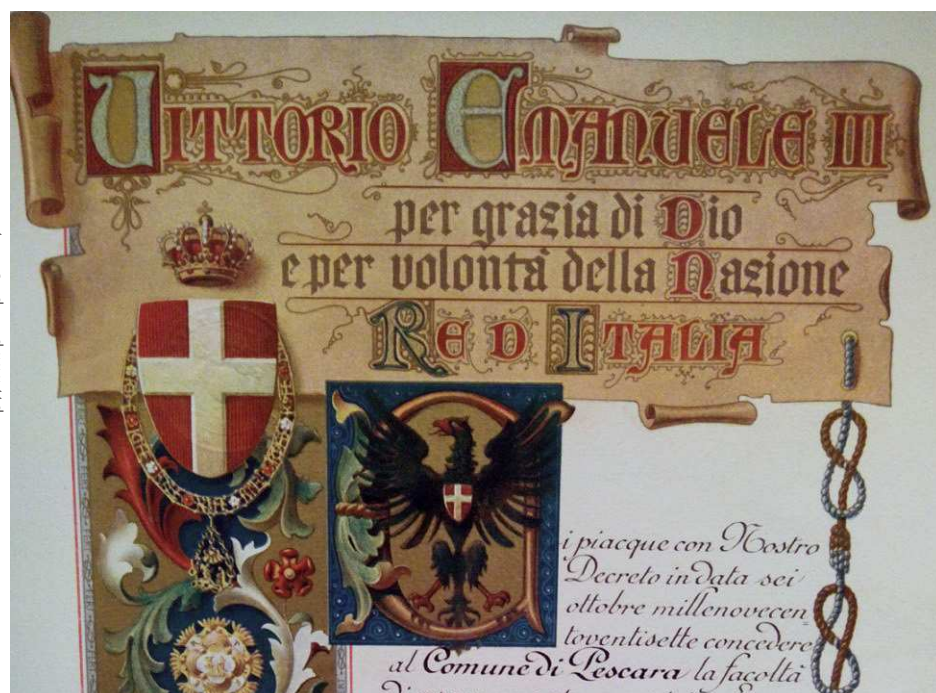 VITTORIO EMANUELE III
per grazia di Dio
e per volontà della Nazione
RE D ITALIA
i piacque con Nostro
Decreto in data sei
ottobre millenovecen=
toventisette concedere
al Comune di Pescara la facoltà